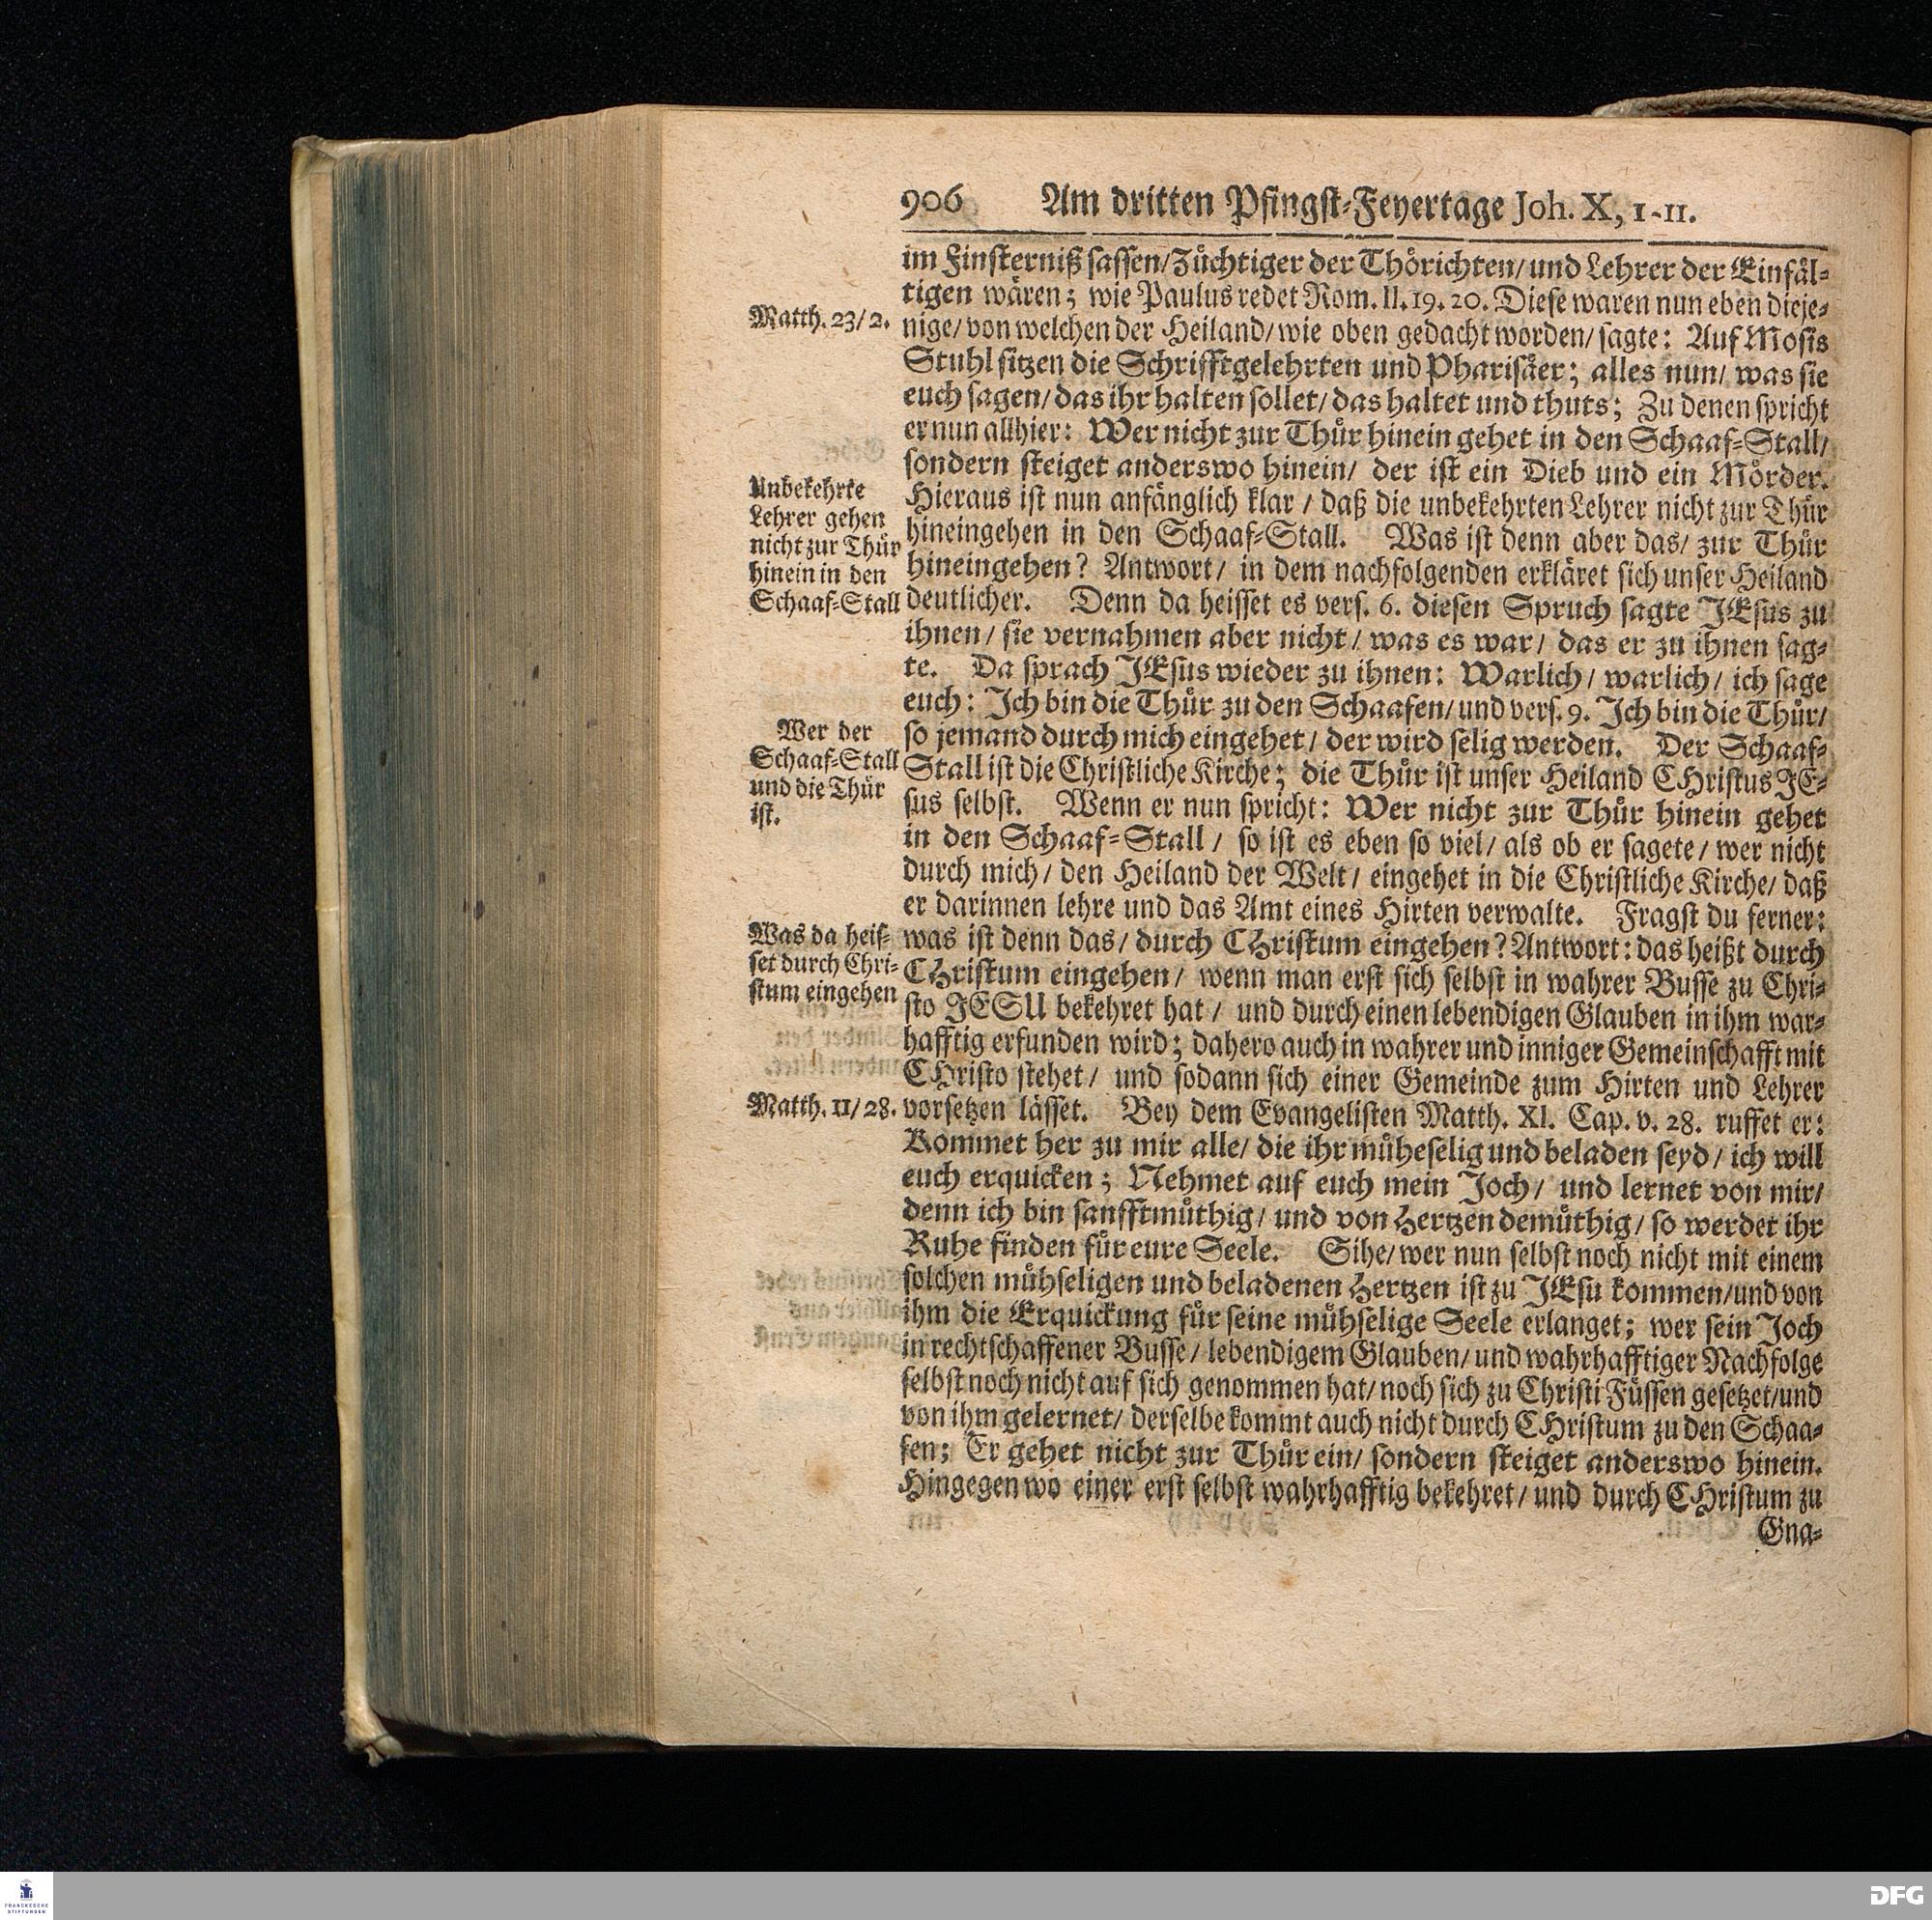 906 Am dritten Pfingst-Feyertage Joh. X, 1-11.
im Finsterniß sassen/Züchtiger der Thörichten/und Lehrer der Einfäl-
tigen wären; wie Paulus redet Rom. II. 19. 20. Diese waren nun eben dieje-
Matth. 23/2.
nige/von welchen der Heiland/wie oben gedacht worden/sagte: Auf Mosis
Stuhl sitzen die Schrifftgelehrten und Pharisäer; alles nun/ was sie
euch sagen/das ihr halten sollet/das haltet und thuts; Zu denen spricht
er nun allhier: Wer nicht zur Thür hinein gehet in den Schaaf-Stall/
sondern steiget anderswo hinein/ der ist ein Dieb und ein Mörder.
Unbekehrte
Lehrer gehen
nicht zur Thür
hinein in den
Schaaf-Stall
Hieraus ist nun anfänglich klar / daß die unbekehrten Lehrer nicht zur Thür
hineingehen in den Schaaf-Stall. Was ist denn aber das/ zur Thür
hineingehen? Antwort/ in dem nachfolgenden erkläret sich unser Heiland
deutlicher. Denn da heisset es vers. 6. diesen Spruch sagte JEsus zu
ihnen/ sie vernahmen aber nicht/ was es war/ das er zu ihnen sag-
te. Da sprach JEsus wieder zu ihnen: Warlich/ warlich/ ich sage
euch: Ich bin die Thür zu den Schaafen/und vers. 9. Ich bin die Thür/
Wer der
Schaaf-Stall
und die Thür
ist.
so jemand durch mich eingehet/ der wird selig werden. Der Schaaf-
Stall ist die Christliche Kirche; die Thür ist unser Heiland CHristus JE-
sus selbst. Wenn er nun spricht: Wer nicht zur Thür hinein gehet
in den Schaaf-Stall / so ist es eben so viel/ als ob er sagete/ wer nicht
durch mich/ den Heiland der Welt/ eingehet in die Christliche Kirche/ daß
er darinnen lehre und das Amt eines Hirten verwalte. Fragst du ferner:
Was da heis-
set durch Chri-
stum eingehen
was ist denn das/ durch CHristum eingehen? Antwort: das heißt durch
CHristum eingehen/ wenn man erst sich selbst in wahrer Busse zu Chri-
sto JESU bekehret hat / und durch einen lebendigen Glauben in ihm war-
hafftig erfunden wird; dahero auch in wahrer und inniger Gemeinschafft mit
CHristo stehet/ und sodann sich einer Gemeinde zum Hirten und Lehrer
Matth. 11/28.
vorsetzen lässet. Bey dem Evangelisten Matth. XI. Cap. v. 28. ruffet er:
Kommet her zu mir alle/ die ihr müheselig und beladen seyd/ ich will
euch erquicken; Nehmet auf euch mein Joch/ und lernet von mir/
denn ich bin sanfftmüthig/ und von Hertzen demüthig/ so werdet ihr
Ruhe finden für eure Seele. Sihe/wer nun selbst noch nicht mit einem
solchen mühseligen und beladenen Hertzen ist zu JEsu kommen/und von
ihm die Erquickung für seine mühselige Seele erlanget; wer sein Joch
in rechtschaffener Busse/ lebendigem Glauben/ und wahrhafftiger Nachfolge
selbst noch nicht auf sich genommen hat/noch sich zu Christi Füssen gesetzet/und
von ihm gelernet/ derselbe kommt auch nicht durch CHristum zu den Schaa-
fen; Er gehet nicht zur Thür ein/ sondern steiget anderswo hinein.
Hingegen wo einer erst selbst wahrhafftig bekehret/ und durch CHristum zu
Gna-
FRANCKESCHE
STIFTUNGEN
DFG